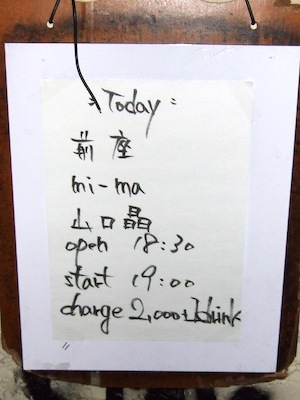 : Today :
前座
mi-ma
山口晶
open 18:30
start 19:00
charge 2,000+1drink